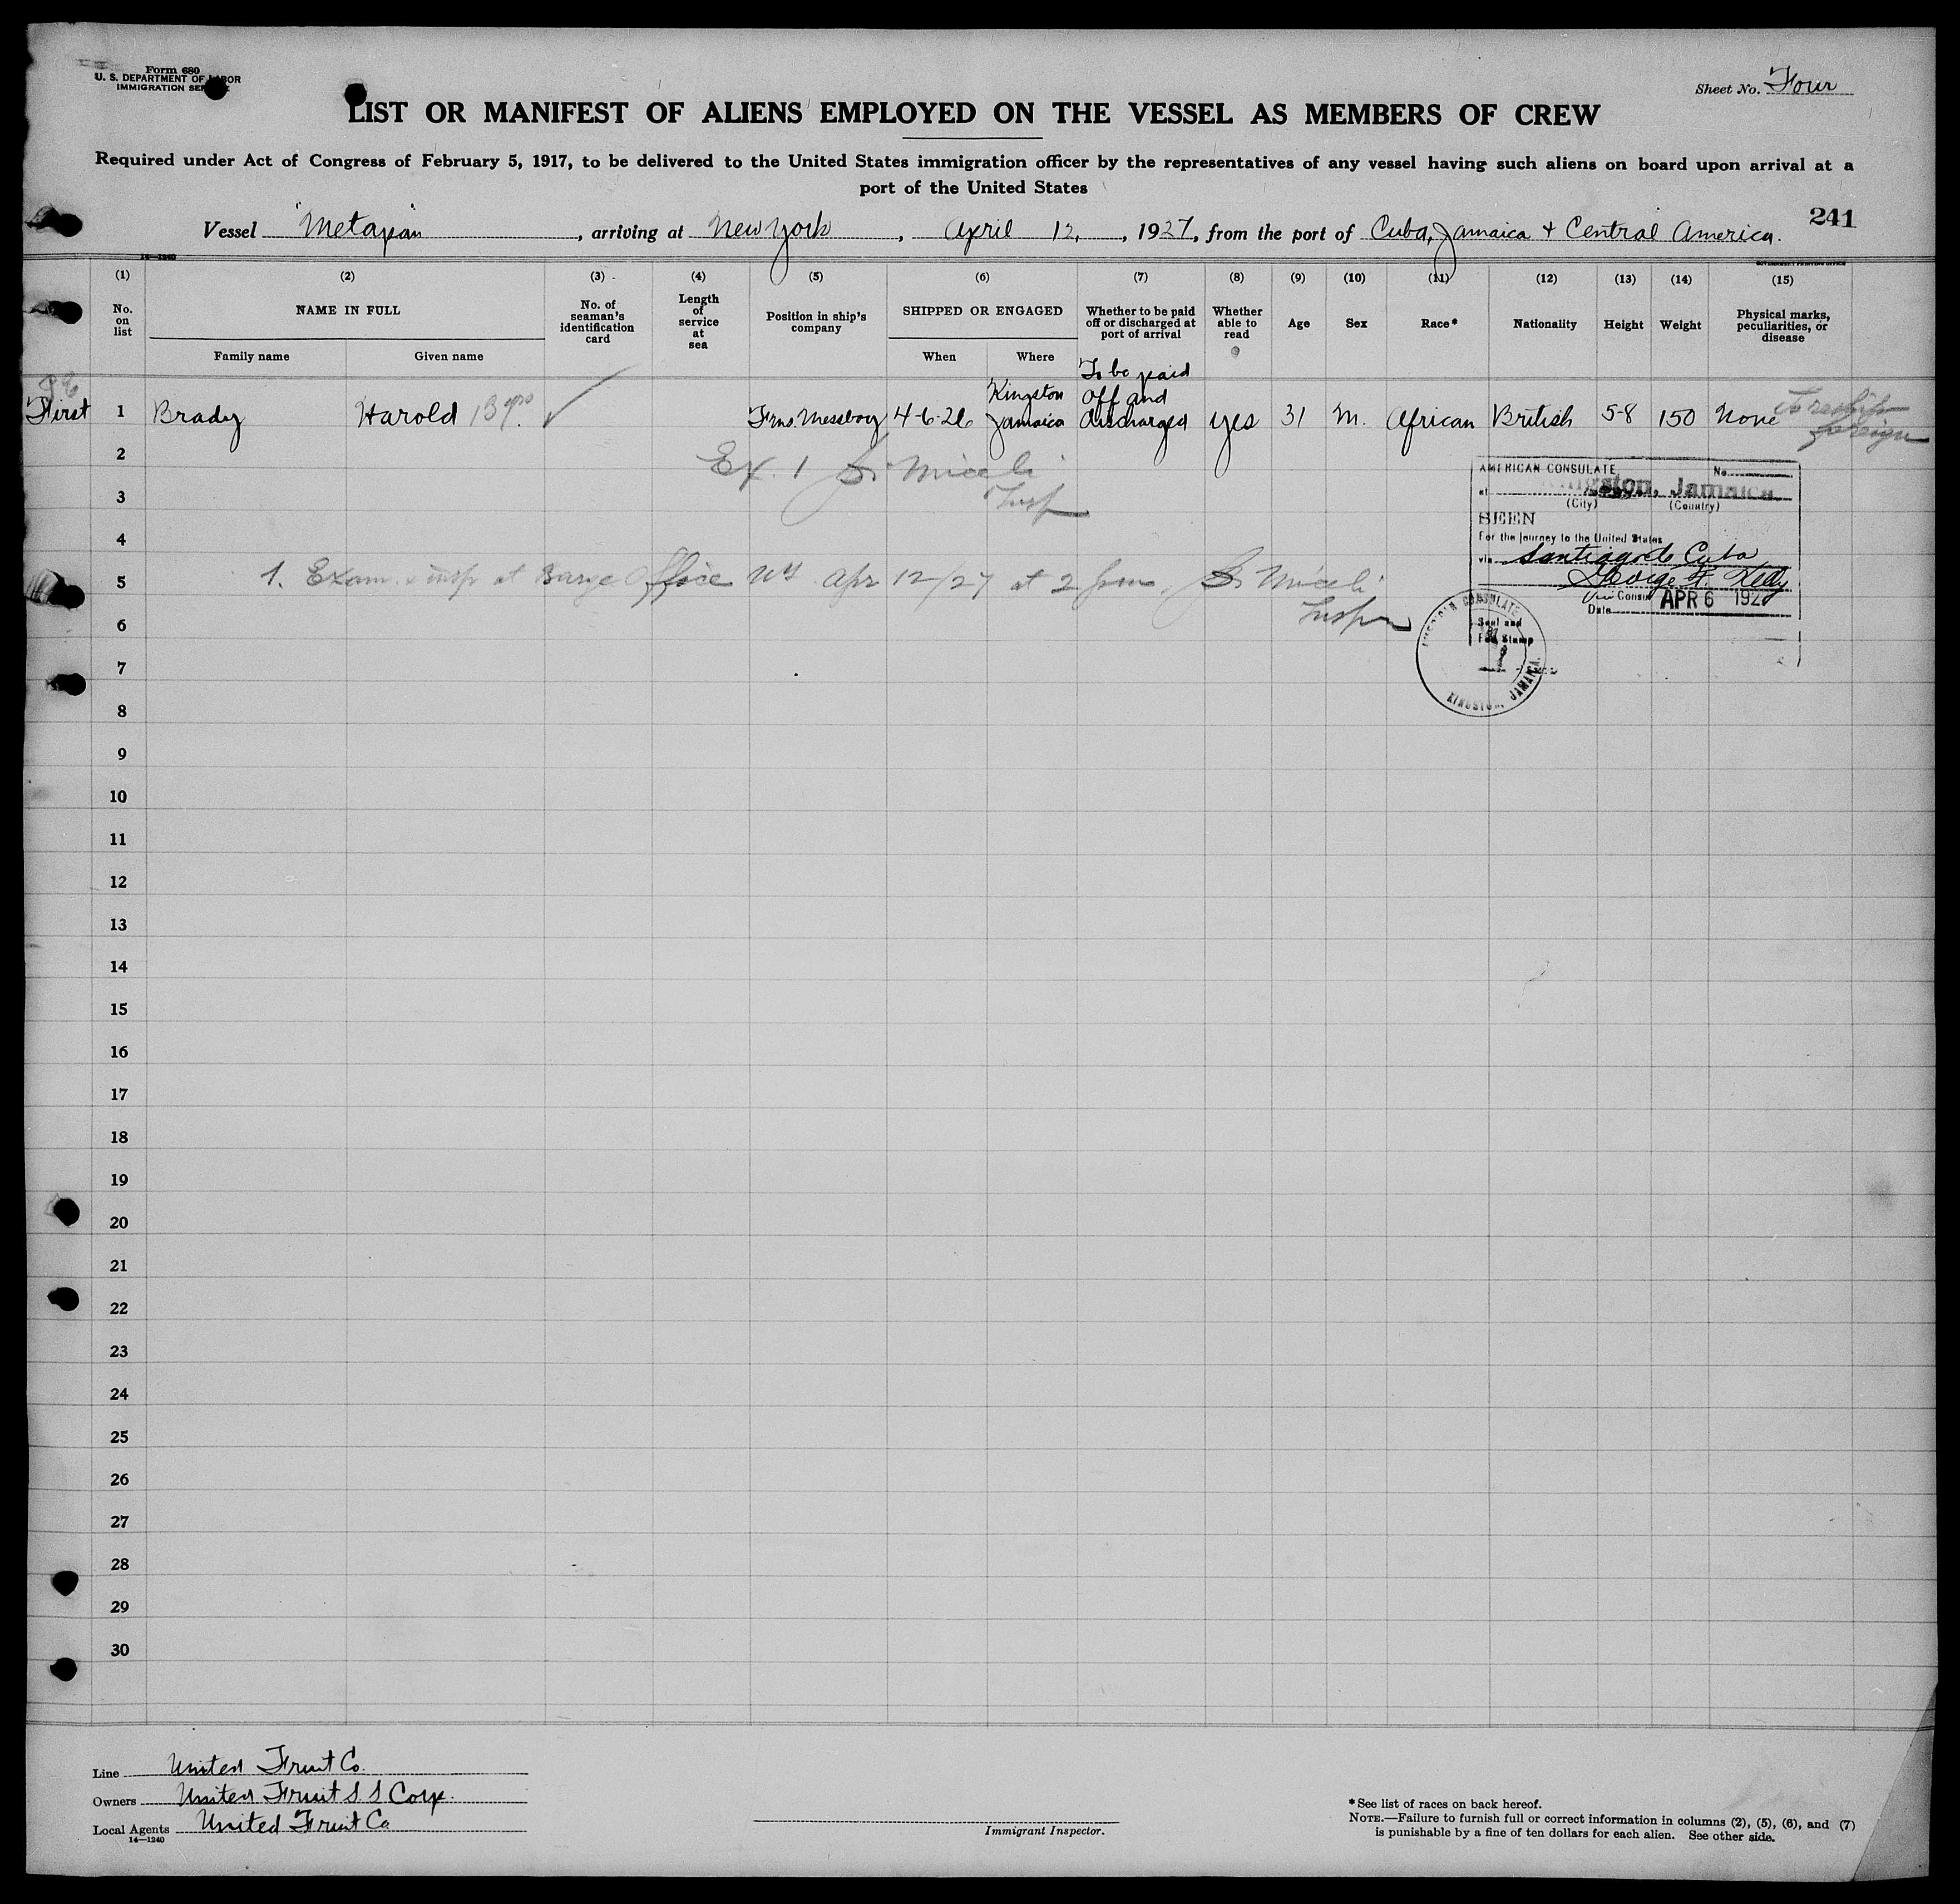 Form 680
U. S. DEPARTMENT OF LABOR
IMMIGRATION SERVICE
Sheet No. Four
LIST OR MANIFEST OF ALIENS EMPLOYED ON THE VESSEL AS MEMBERS OF CREW
Required under Act of Congress of February 5, 1917, to be delivered to the United States immigration officer by the representatives of any vessel having such aliens on board upon arrival at a
port of the United States
241
Vessel "Metapan", arriving at New York, April 12, 1927, from the port of Cuba, Jamaica + Central America.
14-1240
GOVERNMENT PRINTING OFFICE
(1) (2) (3) (4) (5) (6) (7) (8) (9) (10) (11) (12) (13) (14) (15)
No. on list
NAME IN FULL
Family name Given name
No. of seaman's identification card
Length of service at sea
Position in ship's company
SHIPPED OR ENGAGED
When Where
Whether to be paid off or discharged at port of arrival
Whether able to read
Age
Sex
Race*
Nationality
Height
Weight
Physical marks, peculiarities, or disease
First 1 Brady Harold 13 yrs ✓ Frns. Messboy 4-6-26 Kingston Jamaica To be paid off and discharged yes 31 M. African British 5-8 150 None To reship foreign
2
Ex. 1 S. Miceli
Insp
3
4
5
1. Exam. & insp at Barge Office NY Apr 12/27 at 2 pm. S. Miceli
Insp
6
7
8
9
10
11
12
13
14
15
16
17
18
19
20
21
22
23
24
25
26
27
28
29
30
AMERICAN CONSULATE No.
at Kingston, Jamaica.
(City) (Country)
SEEN
For the journey to the United States
via Santiago de Cuba
George F. Kelly
Vice Consul
Date APR 6 1927
Seal and
Fee Stamp
AMERICAN CONSULATE
KINGSTON, JAMAICA.
Line United Fruit Co.
Owners United Fruit S S Corp.
Local Agents United Fruit Co
14—1240
Immigrant Inspector.
*See list of races on back hereof.
NOTE.—Failure to furnish full or correct information in columns (2), (5), (6), and (7)
is punishable by a fine of ten dollars for each alien. See other side.